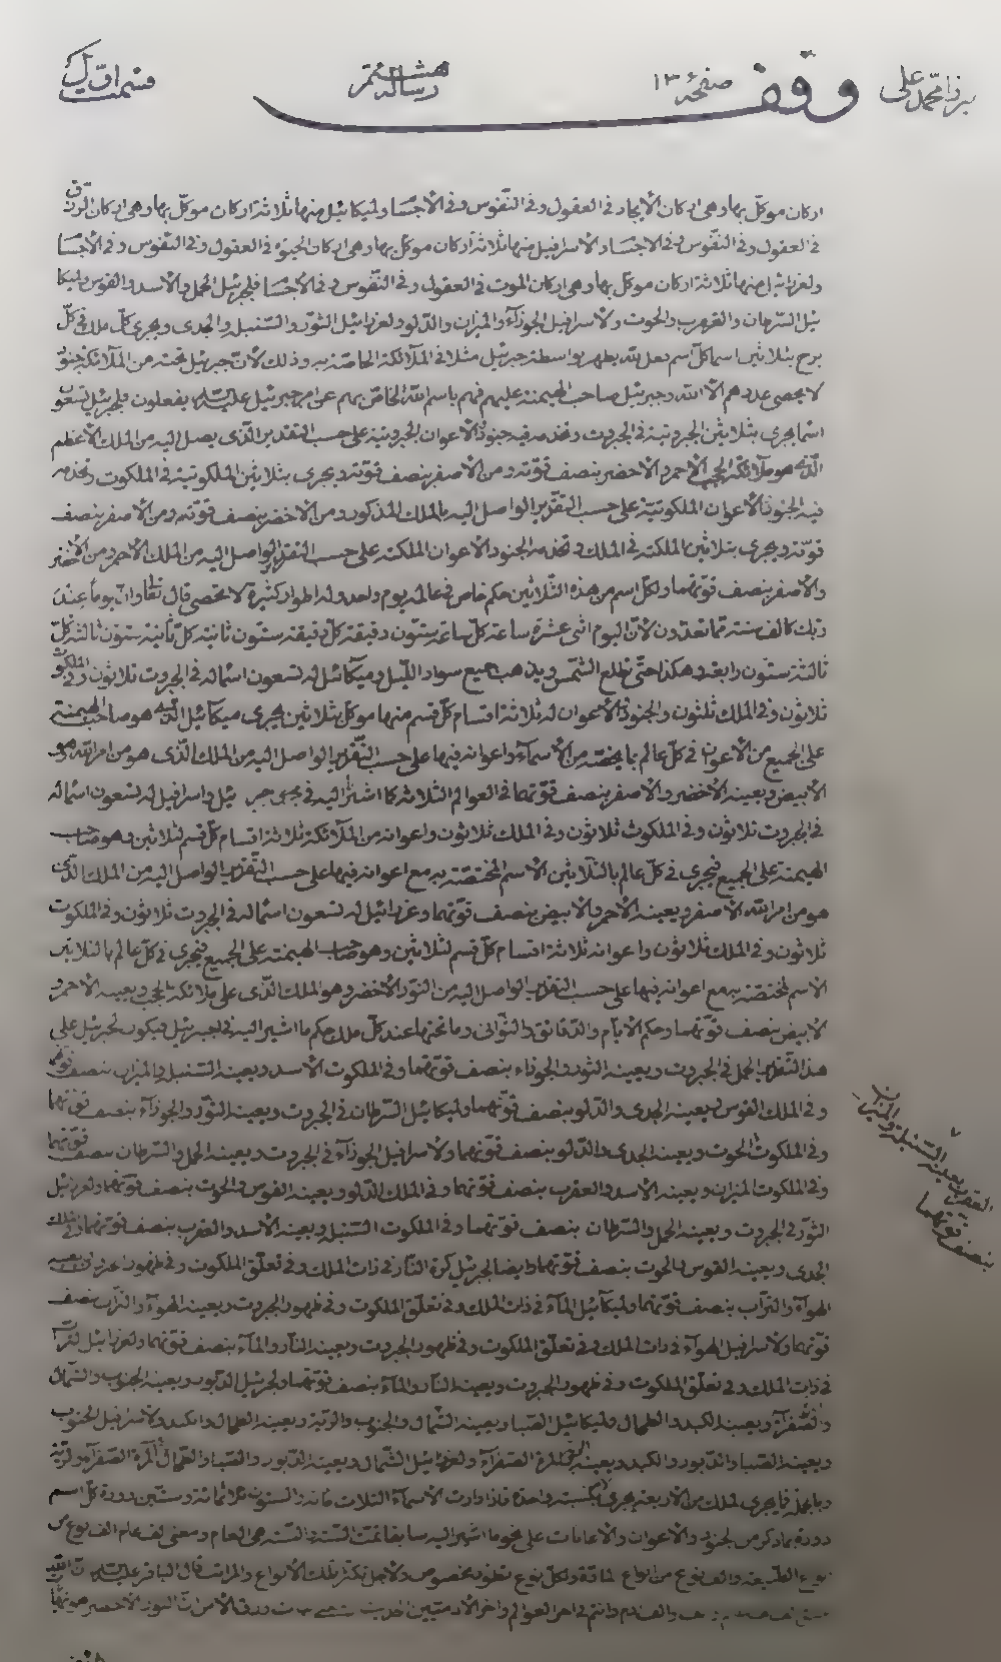 میرزا محمد علی
وقف
صفحهٔ ۱۳
رسالهٔ هشتم
قسمت اوّل
اركان موكّل بها وهی اركان الأيجاد فی العقول وفی النّفوس وفی الأجسا ولميكائيل منها ثلاثة اركان موكّل بها وهی اركان الرزق
فی العقول وفی النّفوس وفی الاجسا ولاسرافيل منها ثلاثة اركان موكّل بها وهی اركان الحيوة فی العقول وفی النّفوس وفی الأجسا
ولعزرائيل منها ثلاثة اركان موكّل بها وهی اركان الموت فی العقول وفی النّفوس وفی الأجسا فلجبرئيل الحمل والأسد والقوس ولميكا
ئيل السّرطان والعقرب والحوت ولاسرافيل الجوزآء والميزان والدّلو ولعزرائيل الثّور والسّنبل والجدی ويجری كلّ ملك فی كلّ
برج بثلاثين اسما كلّ اسم يظهر بواسطة جبرئيل مثلا فی الملائكة الخاصّة به وذلك لأنّ جبرئيل تحته من الملائكة جنود
لا يحصی عددهم الّا الله وجبرئيل صاحب الهيمنة عليهم فهم باسم الله الخاصّ بهم عن امر جبرئيل يفعلون فلجبرئيل تسعون
اسما يجری بثلاثين الجبروتية فی الجبروت وتخدمه فيه جنود الأعوان الجبروتية علی حسب التّقدير الّذی يصل اليه من الملك الأعظم
الّذی هو ملائكة الحجب الأحمر والاخضر بنصف قوّته ومن الأصفر بنصف قوّته ويجری بثلاثين الملكوتية فی الملكوت وتخدمه
فيه الجنود الأعوان الملكوتيّة علی حسب التّقدير الواصل اليه بالملك المذكور ومن الاخضر بنصف قوّته ومن الأصفر بنصف
قوّته ويجری بثلاثين الملكية فی الملك وتخدمه الجنود الأعوان الملكية علی حسب التّقدير الواصل اليه من الملك الأحمر ومن الأخضر
والأصفر بنصف قوّتهما ولكلّ اسم من هذه الثّلاثين حكم خاص فی عالمه يوم واحد وله اطوار كثيرة لا تحصی قال تعا وانّ يوماً عند
ربّك كالف سنة ممّا تعدّون لأنّ اليوم اثنی عشرة ساعة كلّ ساعة ستّون دقيقة كلّ دقيقة ستّون ثانية كلّ ثانية ستّون ثالثة كلّ
ثالثة ستّون رابعة وهكذا حتّی تطلع الشّمس ويذهب جميع سواد اللّيل وميكائيل له تسعون اسما له فی الجبروت ثلاثون وفی الملكوت
ثلاثون وفی الملك ثلثون والجنود الأعوان له ثلاثة اقسام كلّ قسم منها موكّل ثلاثين يجری ميكائيل الّذی هو صاحب الهيمنة
علی الجميع من الأعوان فی كلّ عالم بما يخصّه من الأسمآء واعوانه فيها علی حسب التّقدير الواصل اليه من الملك الّذی هو من امر الله وهو
الأبيض ويعينه الأخضر والأصفر بنصف قوّتهما فی العوالم الثلاثة كما اشير اليه فی جبرئيل واسرافيل له تسعون اسما له
فی الجبروت ثلاثون وفی الملكوت ثلاثون وفی الملك ثلاثون واعوانه من الملائكة ثلاثة اقسام كلّ قسم لثلاثين وهو صاحب
الهيمنة علی الجميع فيجری فی كلّ عالم بالثّلاثين الأسم المختصّة به مع اعوانه فيها علی حسب التّقدير الواصل اليه من الملك الّذی
هو من امر الله الاصفر ويعينه الأحمر والأبيض بنصف قوّتهما وعزرائيل له تسعون اسما له فی الجبروت ثلاثون وفی الملكوت
ثلاثون وفی الملك ثلاثون واعوانه ثلاثة اقسام كلّ قسم لثلاثين وهو صاحب الهيمنة علی الجميع فيجری فی كلّ عالم بالثلاثين
الأسم المختصّة به مع اعوانه فيها علی حسب التقدير الواصل اليه من النّور الأخضر وهو الملك الّذی علی ملائكة الحجب ويعينه الأحمر و
الأبيض بنصف قوّتهما وحكم الأيام والدّقائق والثّوانی وما تحتها عند كلّ ملك حكم ما اشير اليه فی جبرئيل فيكون لجبرئيل علی
هذا التّقدير الحمل فی الجبروت ويعينه الثّور والجوزاء بنصف قوّتهما وفی الملكوت الأسد ويعينه السّنبل والميزان بنصف قوّتهما
وفی الملك القوس ويعينه الجدی والدّلو بنصف قوّتهما ولميكائيل السّرطان فی الجبروت ويعينه الثّور والجوزآء بنصف قوّتهما
وفی الملكوت الحوت ويعينه الجدی والدّلو بنصف قوّتهما ولاسرافيل الجوزآء فی الجبروت ويعينه الحمل والسّرطان بنصف قوّتهما
وفی الملكوت الميزان ويعينه الأسد والعقرب بنصف قوّتهما وفی الملك الدّلو ويعينه القوس والحوت بنصف قوّتهما ولعزرائيل
الثّور فی الجبروت ويعينه الحمل والسّرطان بنصف قوّتهما وفی الملكوت السّنبل ويعينه الأسد والعقرب بنصف قوّتهما وفی الملك
الجدی ويعينه القوس والحوت بنصف قوّتهما وايضا لجبرئيل كرة النّار فی ذات الملك وفی تعلّق الملكوت وفی ظهور الجبروت ويعينه
الهوآء والتّراب بنصف قوّتهما ولميكآئيل المآء فی ذات الملك وفی تعلّق الملكوت وفی ظهور الجبروت ويعينه الهوآء والتّراب بنصف
قوّتهما ولاسرافيل الهوآء فی ذات الملك وفی تعلّق الملكوت وفی ظهور الجبروت ويعينه النّار والمآء بنصف قوّتهما ولعزرائيل التّراب
فی ذات الملك وفی تعلّق الملكوت وفی ظهور الجبروت ويعينه النّار والمآء بنصف قوّتهما ولجبرئيل الدّبور ويعينه الجنوب والشّمال
والصّفرآء ويعينه الكبد والطحال ولميكائيل الصّبا ويعينه الشّمال والجنوب والريّة ويعينه الطحال والكبد ولاسرافيل الجنوب
ويعينه الصّبا والدّبور والكبد ويعينه المرة الصّفرآء ولعزرائيل الشّمال ويعينه الدّبور والصّبا والطّحال المرّة الصّفرآء والريّة
وبالجملة فيجری لملك من الأربعة فاذا دارت الأسمآء الثلاث مائة والستون ثلاثمائة وستّين دورة كلّ اسم
دورة بما ذكر من الجنود والأعوان والأعانات علی نحو ما اشير اليه سابقا تمت السّنة والسّنة هی العام ومعنی الف عام الف نوع من
العقرب يعينه السّنبلة والميزان
بنصف قوّتهما